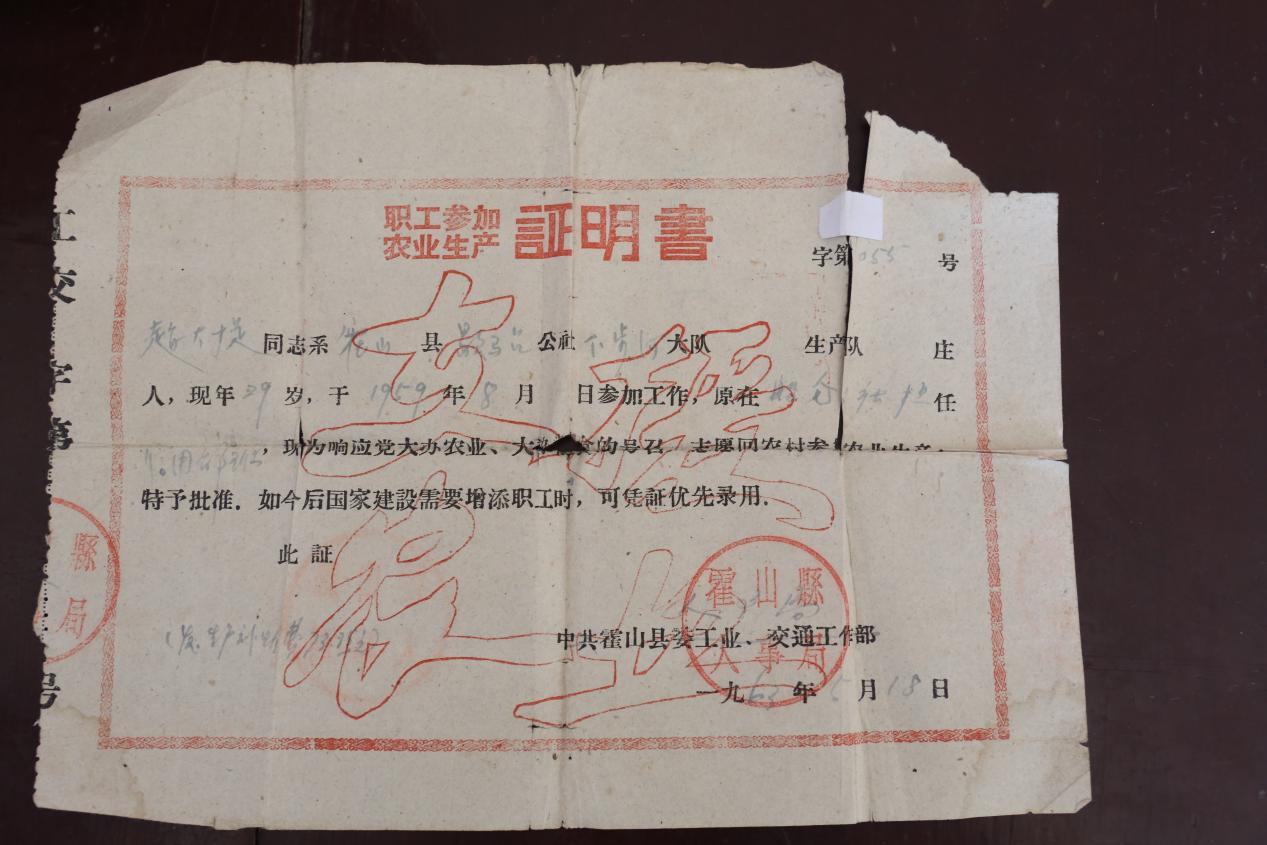 职工参加
农业生产 証明書
字第055号
同志系霍山县 公社 大队 生产队 庄
人，现年29岁，于1959年8月 日参加工作，原在 任
，现为响应党大办农业、大 的号召，志愿回农村参加农业生产，
特予批准．如今后国家建設需要增添职工时，可凭証优先录用．
此証
支援
农业
中共霍山县委工业、交通工作部
霍山縣
人事局
一九62年5月18日
工交字第
号
縣
局